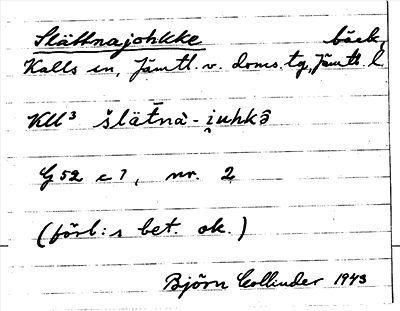 Slättnajohkke bäck
Kalls sn, Jämtl. v. doms. tg, Jämtl. l
Kll³ šlǟtnà - i̯uhkē̮
G 52 c 7, nr. 2
(förl:s bet. ok.)
Björn Collinder 1943